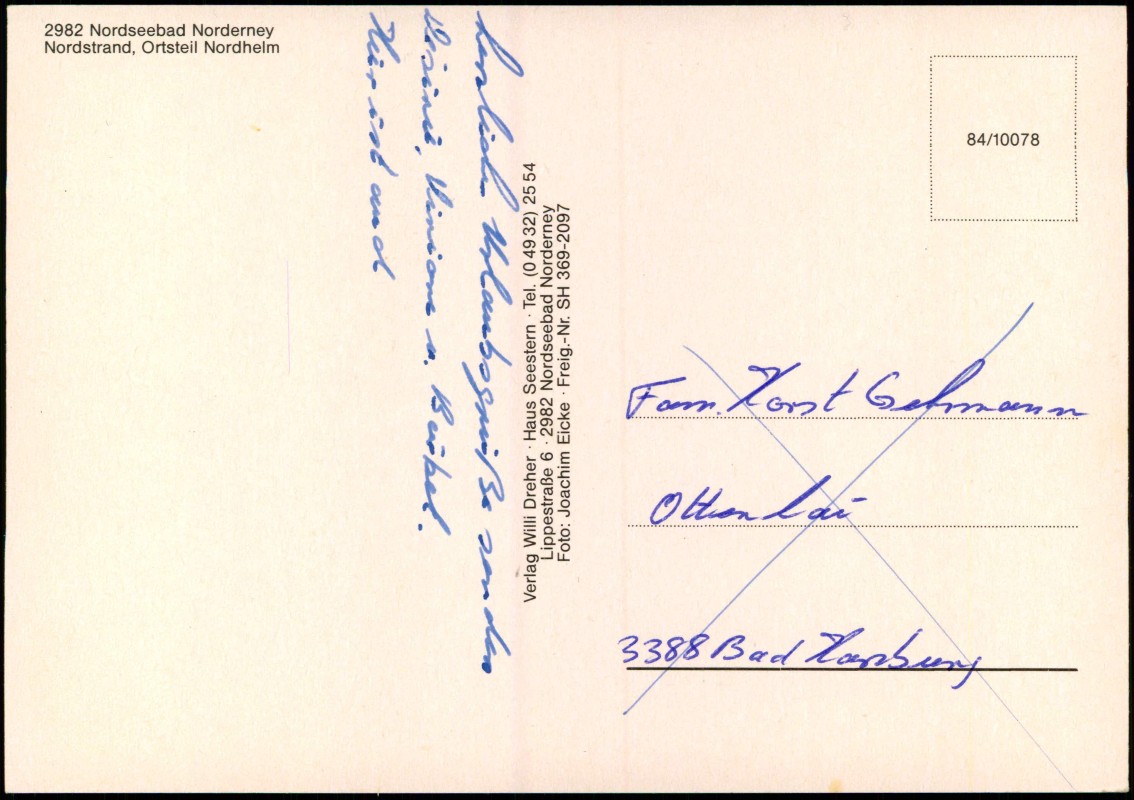 2982 Nordseebad Norderney
Nordstrand, Ortsteil Nordhelm
herzliche Urlaubsgrüße senden
u. Bärbel.
Hier ist
Verlag Willi Dreher · Haus Seestern · Tel. (0 49 32) 25 54
Lippestraße 6 · 2982 Nordseebad Norderney
Foto: Joachim Eicke · Freig.-Nr. SH 369-2097
84/10078
Fam. Horst Gehrmann
3388 Bad Harzburg